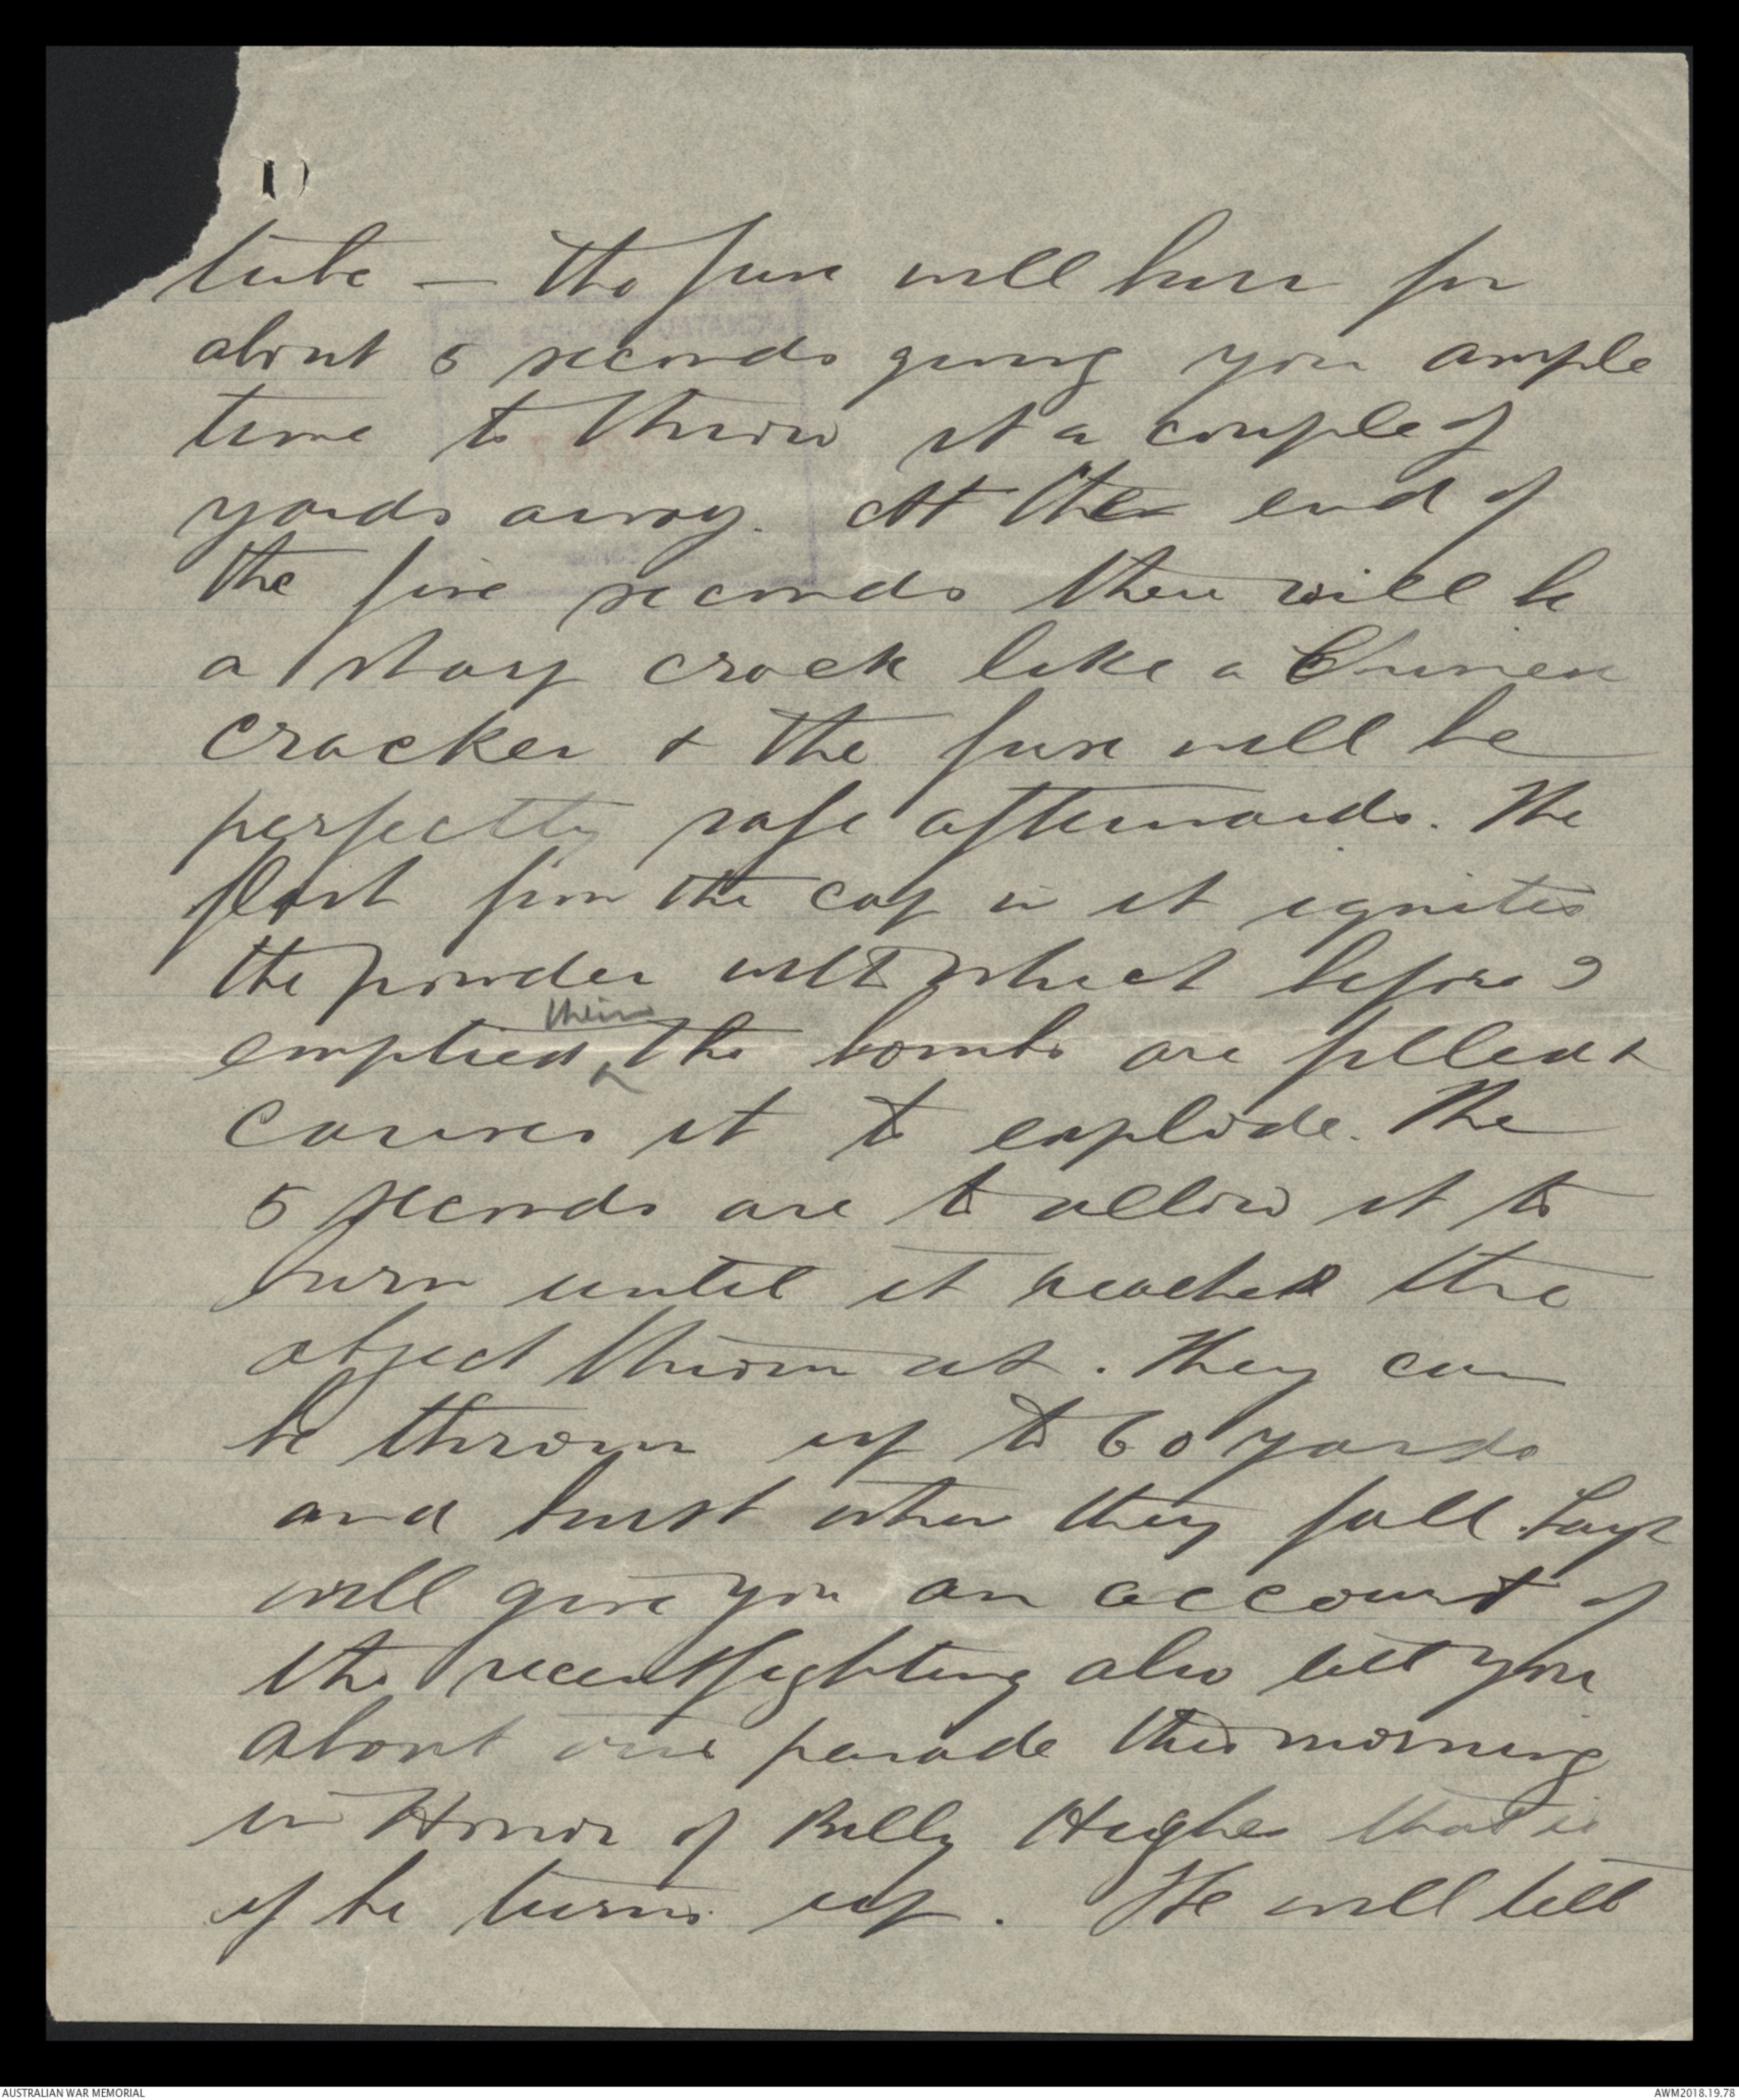 tube — the fuse will burn for
about 5 seconds giving you ample
time to throw it a couple of
yards away. At the end of
the five seconds there will be
a sharp crack like a Chinese
cracker & the fuse will be
perfectly safe afterwards. The
flash from the cap in it ignites
the powder with which before I
emptied them the bombs are filled &
causes it to explode. The
5 seconds are to allow it to
burn until it reaches the
object thrown at. They can
be thrown up to 60 yards
and burst when they fall.
will give you an account of
the recent fighting also tell you
about our parade this morning
in Honor of Billy Hughes that is
if he turns up. He will tell
AUSTRALIAN WAR MEMORIAL
AWM2018.19.78